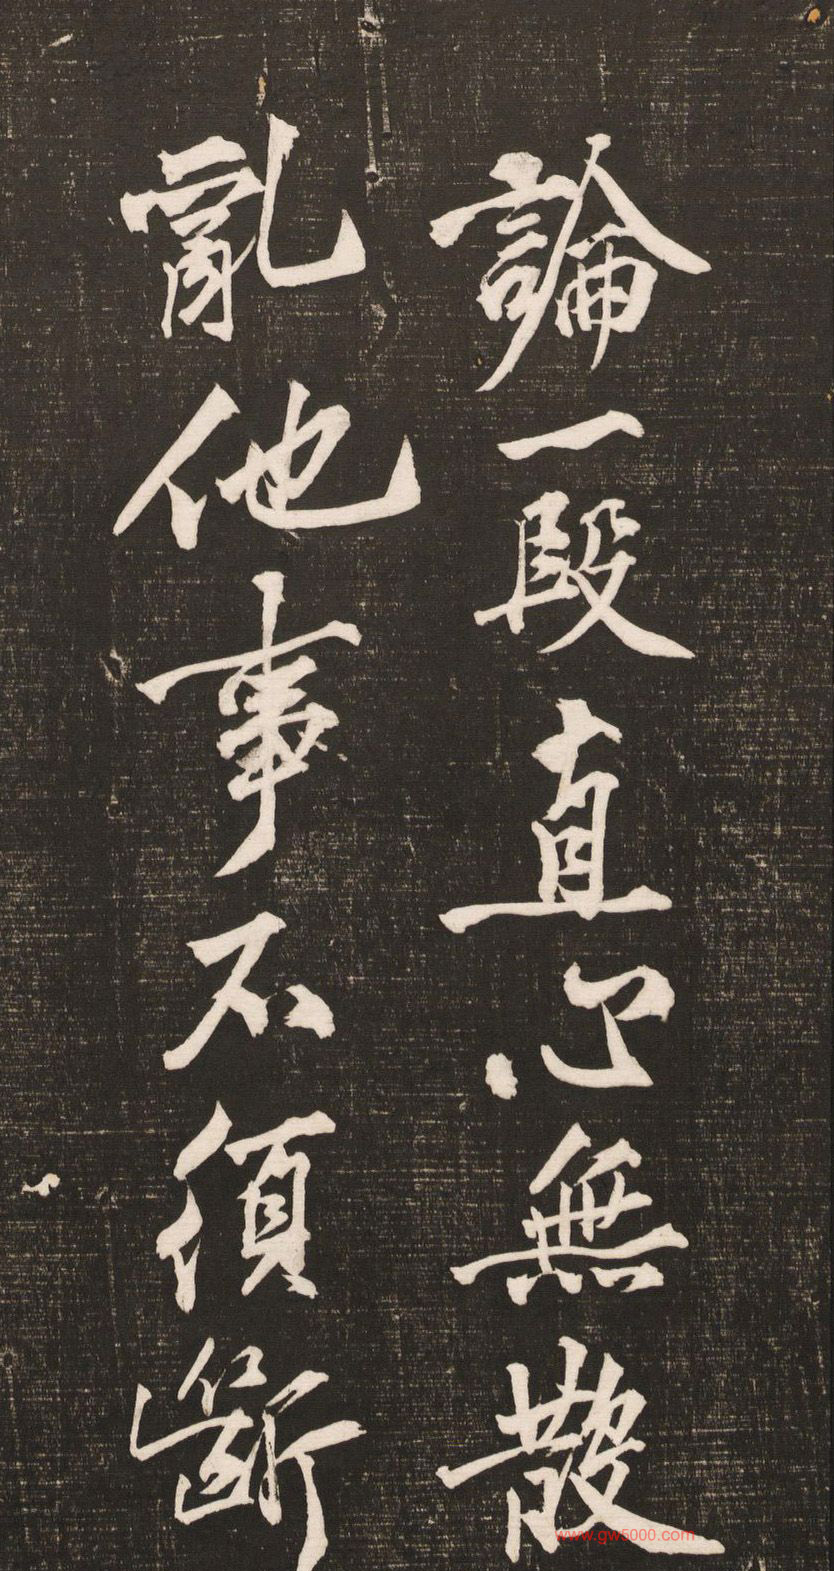 論一段直心無散
亂他事不須斷
www.gw5000.com